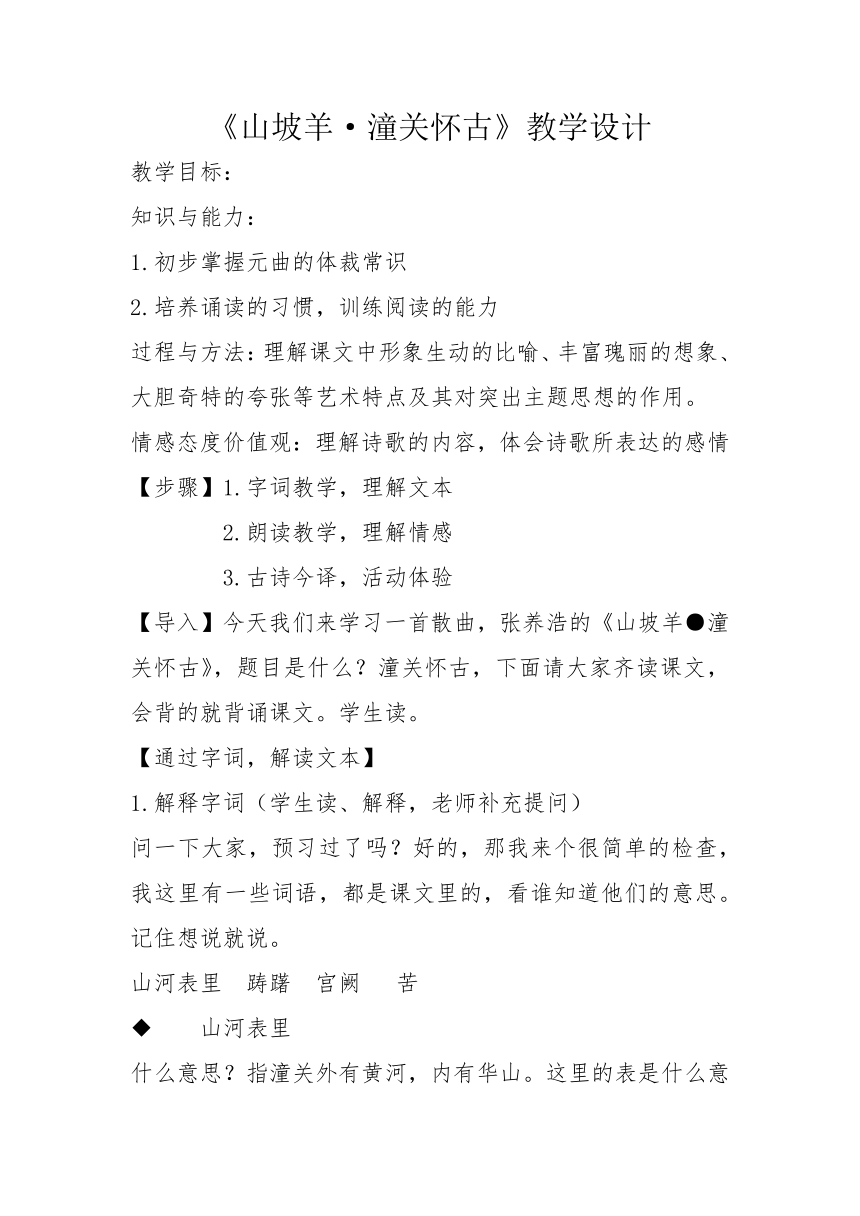 《山坡羊·潼关怀古》教学设计
教学目标：
知识与能力：
1.初步掌握元曲的体裁常识
2.培养诵读的习惯，训练阅读的能力
过程与方法：理解课文中形象生动的比喻、丰富瑰丽的想象、
大胆奇特的夸张等艺术特点及其对突出主题思想的作用。
情感态度价值观：理解诗歌的内容，体会诗歌所表达的感情
【步骤】1.字词教学，理解文本
2.朗读教学，理解情感
3.古诗今译，活动体验
【导入】今天我们来学习一首散曲，张养浩的《山坡羊●潼
关怀古》，题目是什么？潼关怀古，下面请大家齐读课文，
会背的就背诵课文。学生读。
【通过字词，解读文本】
1.解释字词（学生读、解释，老师补充提问）
问一下大家，预习过了吗？好的，那我来个很简单的检查，
我这里有一些词语，都是课文里的，看谁知道他们的意思。
记住想说就说。
山河表里 踌躇 宫阙 苦
◆ 山河表里
什么意思？指潼关外有黄河，内有华山。这里的表是什么意